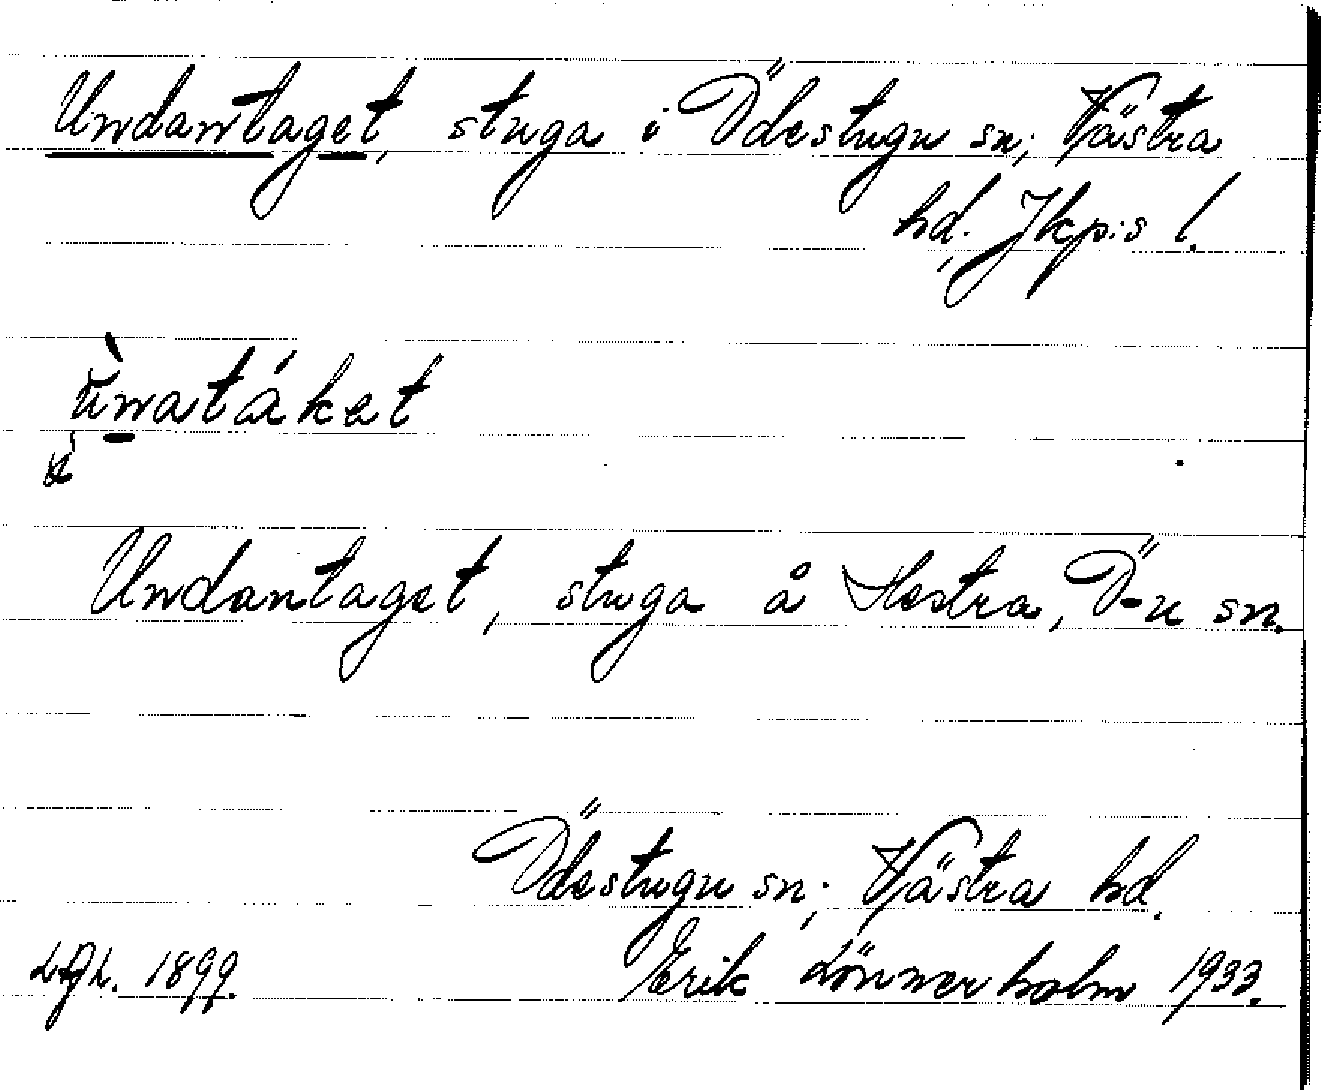 Undantaget, stuga i Ödestugu sn, Västra
hd. Jkp:s l.
ùnatáket
Undantaget, stuga å Hestra, Ö-u sn.
Ödestugu sn, Västra hd.
Lgh. 1899. Erik Lönnerholm 1933.